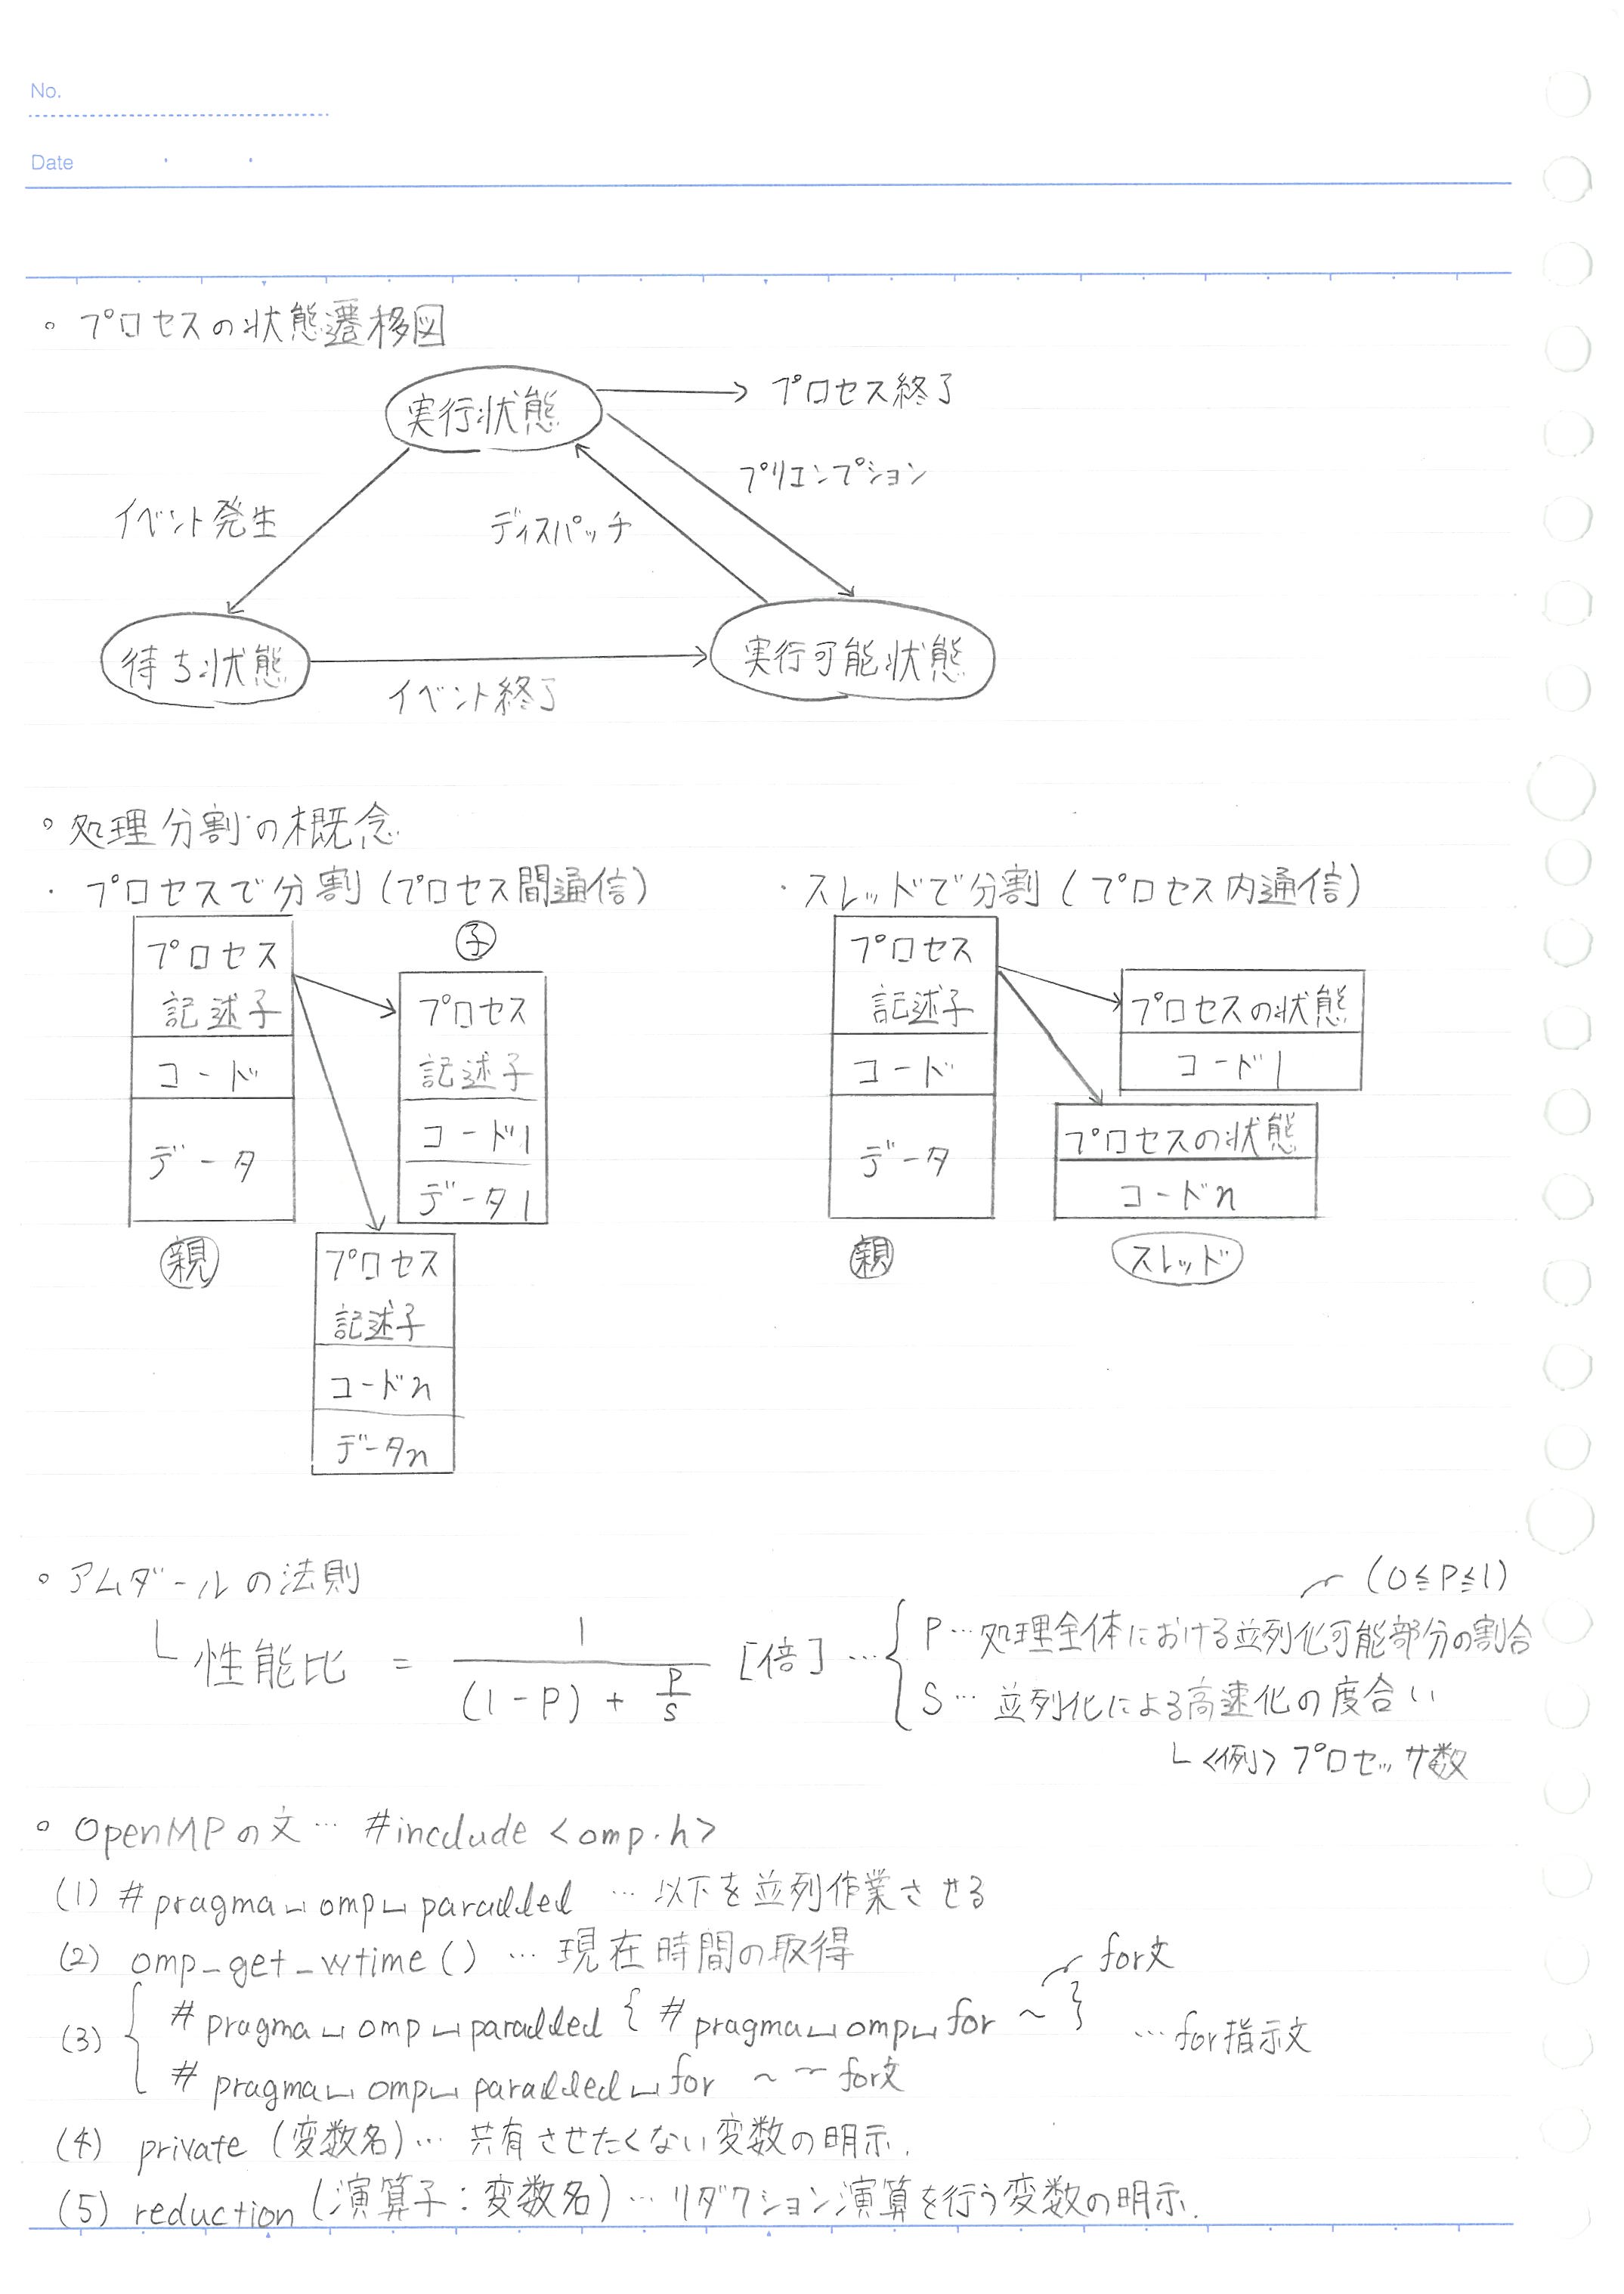 No.
Date
。プロセスの状態遷移図
実行状態
プロセス終了
プリエンプション
イベント発生
ディスパッチ
待ち状態
実行可能状態
イベント終了
。処理分割の概念
・プロセスで分割(プロセス間通信)
プロセス
記述子
コード
データ
親
子
プロセス
記述子
コード1
データ1
プロセス
記述子
コードn
データn
・スレッドで分割(プロセス内通信)
プロセス
記述子
コード
データ
親
プロセスの状態
コード1
プロセスの状態
コードn
スレッド
。アムダールの法則
└ 性能比 = 1 / ((1-P) + P/S) [倍] …
(0≦P≦1)
P…処理全体における並列化可能部分の割合
S…並列化による高速化の度合い
└<例>プロセッサ数
。OpenMPの文… #include <omp.h>
(1) #pragma␣omp␣parallel …以下を並列作業させる
(2) omp_get_wtime() …現在時間の取得
(3) { #pragma␣omp␣parallel { #pragma␣omp␣for ~ } for文
#pragma␣omp␣parallel␣for ~ for文
…for指示文
(4) private (変数名)… 共有させたくない変数の明示.
(5) reduction (演算子:変数名)… リダクション演算を行う変数の明示.